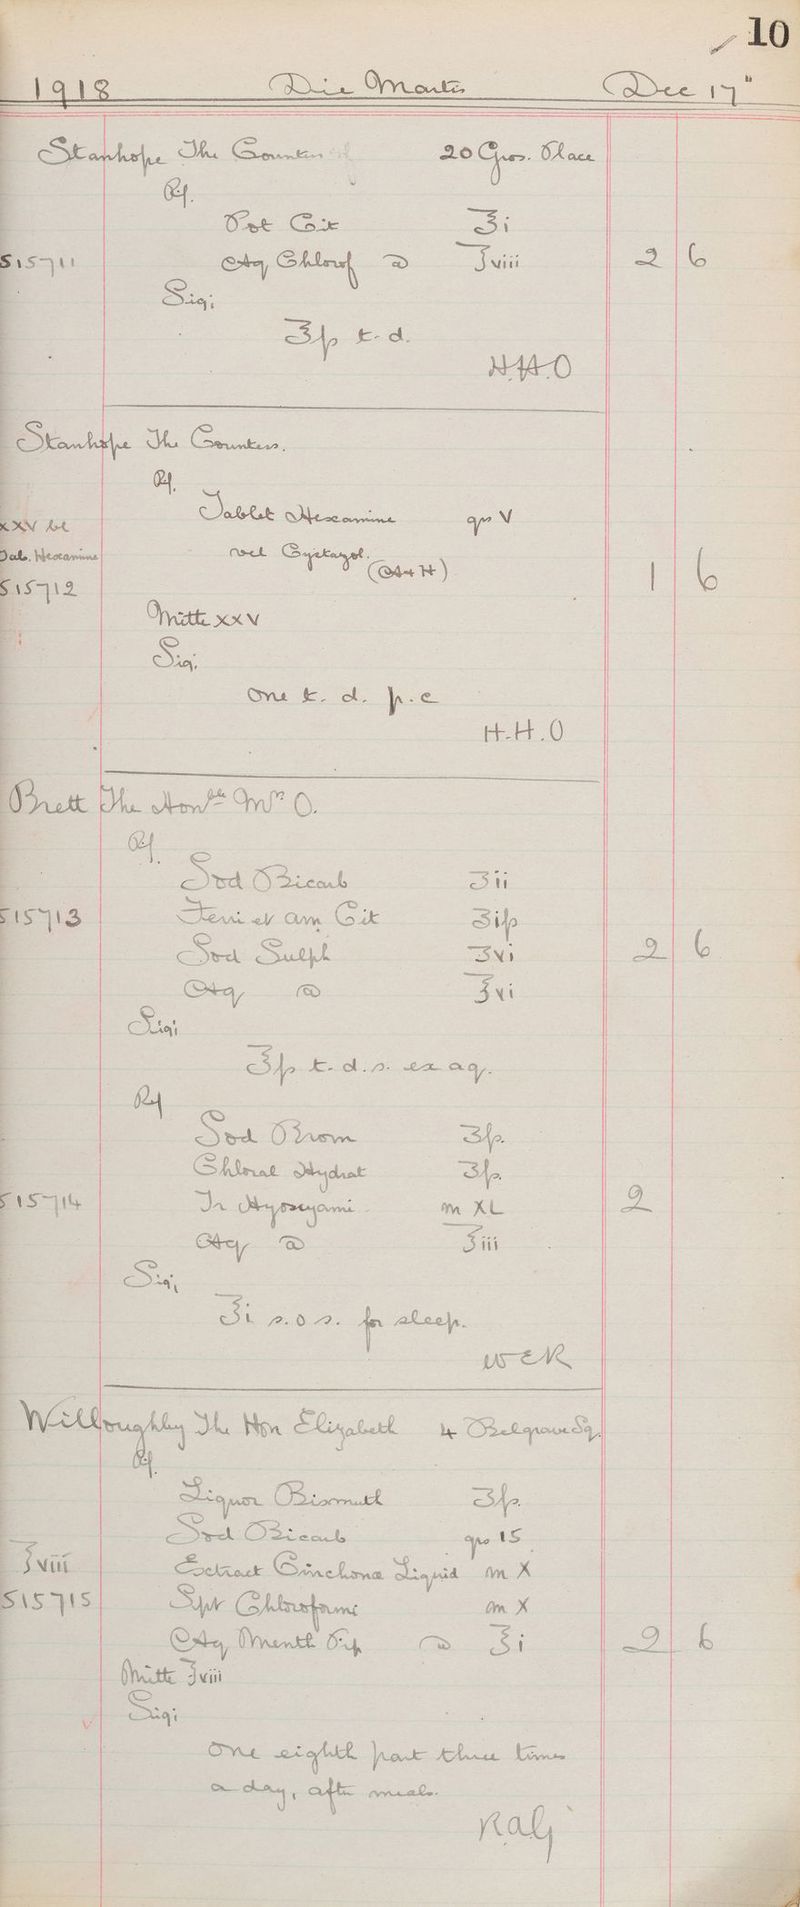 10
1918 Die Martis Dec 17"
Stanhope The Countess of 20 Gros. Place
Rx.
Pot Cit ʒi
515711 Aq Chlorof @ ℥viii 2 6
Sig;
℥ß t. d.
H.H.O
Stanhope The Countess.
Rx.
Tablet Hexamine grs V
xxv
Tab. Hexamine vel Cystazol.
(A & H) 1 6
515712
Mitte xxv
Sig;
one t. d. p.c
H.H.O
Brett The Honble Mrs O.
Rx.
Sod Bicarb ʒii
515713 Ferri et am Cit ʒiß
Sod Sulph ʒvi 2 6
Aq @ ℥vi
Sig;
℥ß t.d.s. ex aq.
Rx
Sod Brom ʒß.
Chloral Hydrat ʒß.
515714 Tr Hyoscyami m XL 2
Aq @ ℥iii
Sig;
℥i s.o s. for sleep.
W E R
Willoughby The Hon Elizabeth 4 Belgrave Sq.
Rx.
Liquor Bismuth ʒß.
Sod Bicarb grs 15
℥viii Extract Cinchonæ Liquid m X
515715 Spt Chloroformi m X
Aq Menth Pip @ ℥i 2 6
Mitte ℥viii
Sig;
One eighth part three times
a day, after meals.
R.A.G